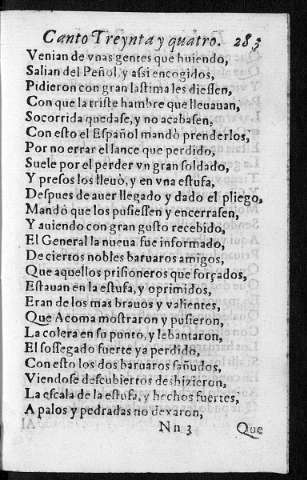 Canto Treynta y quatro. 283
Venian de vnas gentes que huiendo,
Salian del Peñol, y assi encogidos,
Pidieron con gran lastima les diessen,
Con que la triste hambre que lleuauan,
Socorrida quedase, y no acabasen,
Con esto el Español mandò prenderlos,
Por no errar el lance que perdido,
Suele por el perder vn gran soldado,
Y presos los lleuò, y en vna estufa,
Despues de auer llegado y dado el pliego,
Mandò que los pusiessen y encerrasen,
Y auiendo con gran gusto recebido,
El General la nueua fue informado,
De ciertos nobles baruaros amigos,
Que aquellos prisioneros que forçados,
Estauan en la estufa, y oprimidos,
Eran de los mas brauos y valientes,
Que Acoma mostraron y pusieron,
La colera en su punto, y lebantaron,
El sossegado fuerte ya perdido,
Con esto los dos baruaros sañudos,
Viendose descubiertos deshizieron,
La escala de la estufa, y hechos fuertes,
A palos y pedradas no dexaron,
Nn 3 Que